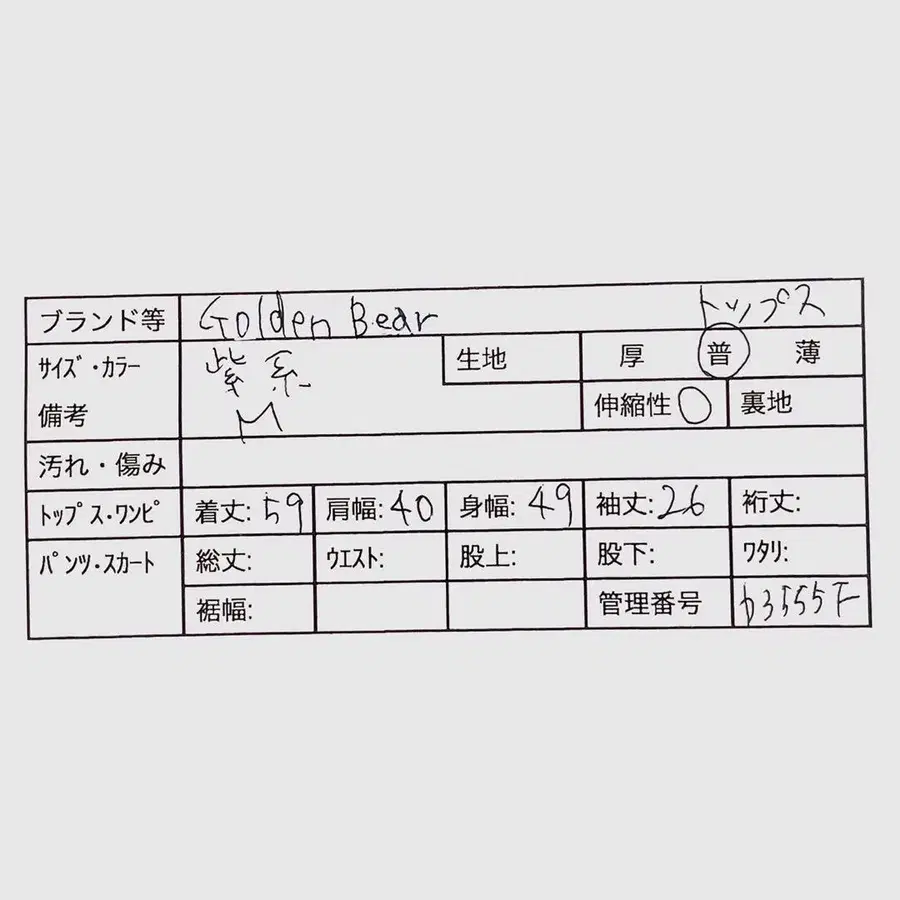 ブランド等 Golden Bear トップス
サイズ・カラー 紫系 生地 厚 普 薄
備考 M 伸縮性 ○ 裏地
汚れ・傷み
トップス・ワンピ 着丈: 59 肩幅: 40 身幅: 49 袖丈: 26 裄丈:
パンツ・スカート 総丈: ウエスト: 股上: 股下: ワタリ:
裾幅: 管理番号 b3555F